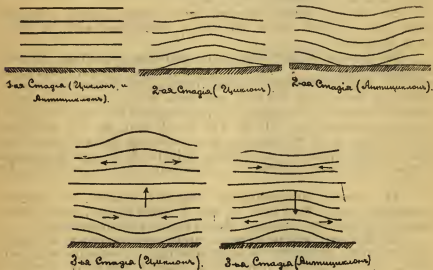 1-ая Стадія (Циклонъ и
Антициклонъ).
2-ая Стадія (Циклонъ)
2-ая Стадія (Антициклонъ).
3-ья Стадія (Циклонъ).
3-ья Стадія (Антициклонъ)